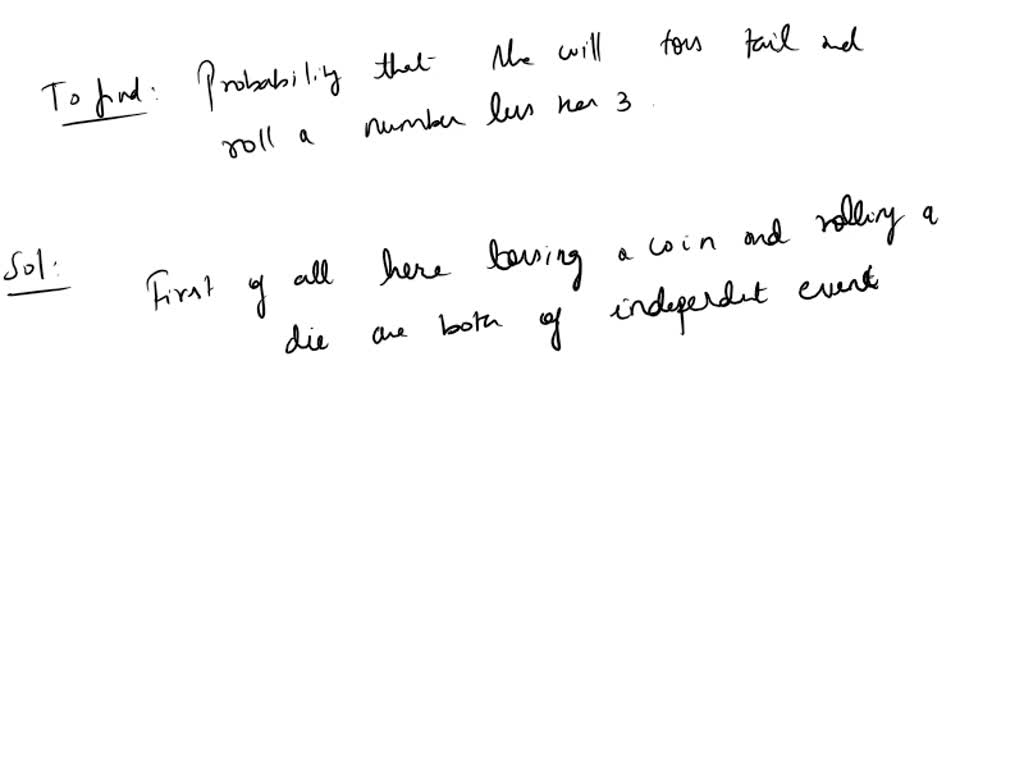 To find: Probability that she will toss tail and
roll a number less than 3.
Sol: First of all here tossing a coin and rolling a
die are both of independent event